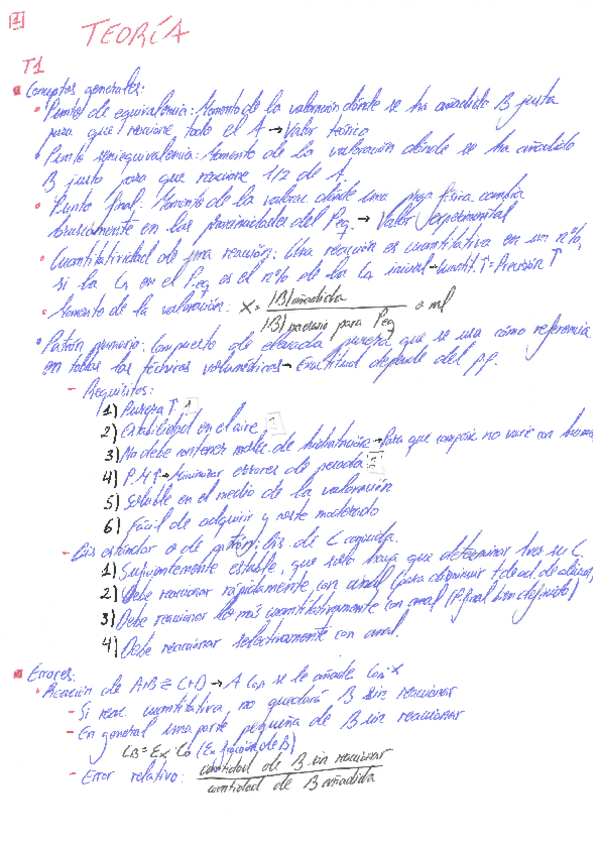 1
TEORÍA
T1
Conceptos generales:
• Punto de equivalencia: Momento de la valoración dónde se ha añadido B justa
para que reaccione todo el A → Valor teórico
• Punto semiequivalencia: Momento de la valoración dónde se ha añadido
B justo para que reaccione 1/2 de A.
• Punto final: Momento de la valorac. dónde una prop. física cambia
bruscamente en las proximidades del Peq. → Valor experimental
• Cuantitatividad de una reacción: Una reacción es cuantitativa en un n%,
si la CA en el Peq es el n% de la CA inicial → Cuantit. ↑ = Precisión ↑
• Momento de la valoración: X = |B| añadida / |B| necesario para Peq o ml
• Patrón primario: Compuesto de elevada pureza que se usa cómo referencia
en todas las técnicas volumétricas → Exactitud depende del p.p.
- Requisitos:
1) Pureza ↑
2) Estabilidad en el aire
3) No debe contener moléc. de hidratación → Para que composic. no varíe con
4) P.M ↑ → Minimizar errores de pesada
5) Soluble en el medio de la valoración
6) Fácil de adquirir y coste moderado
- Dis. estándar o de patrón: dis. de C conocida.
1) Suficientemente estable, que solo haya que determinar su C.
2) Debe reaccionar rápidamente con anal. (para disminuir t de ad. de
3) Debe reaccionar lo más cuantitativamente con anal (P. final bien definido)
4) Debe reaccionar selectivamente con anal.
Errores:
• Reacción de A+B ⇌ C+D → A se le añade
- Si reac. cuantitativa, no quedará B sin reaccionar
- En general una parte pequeña de B sin reaccionar
CB = Ex · Co (Ex fracción de B)
- Error relativo: cantidad de B sin reaccionar
cantidad de B añadida